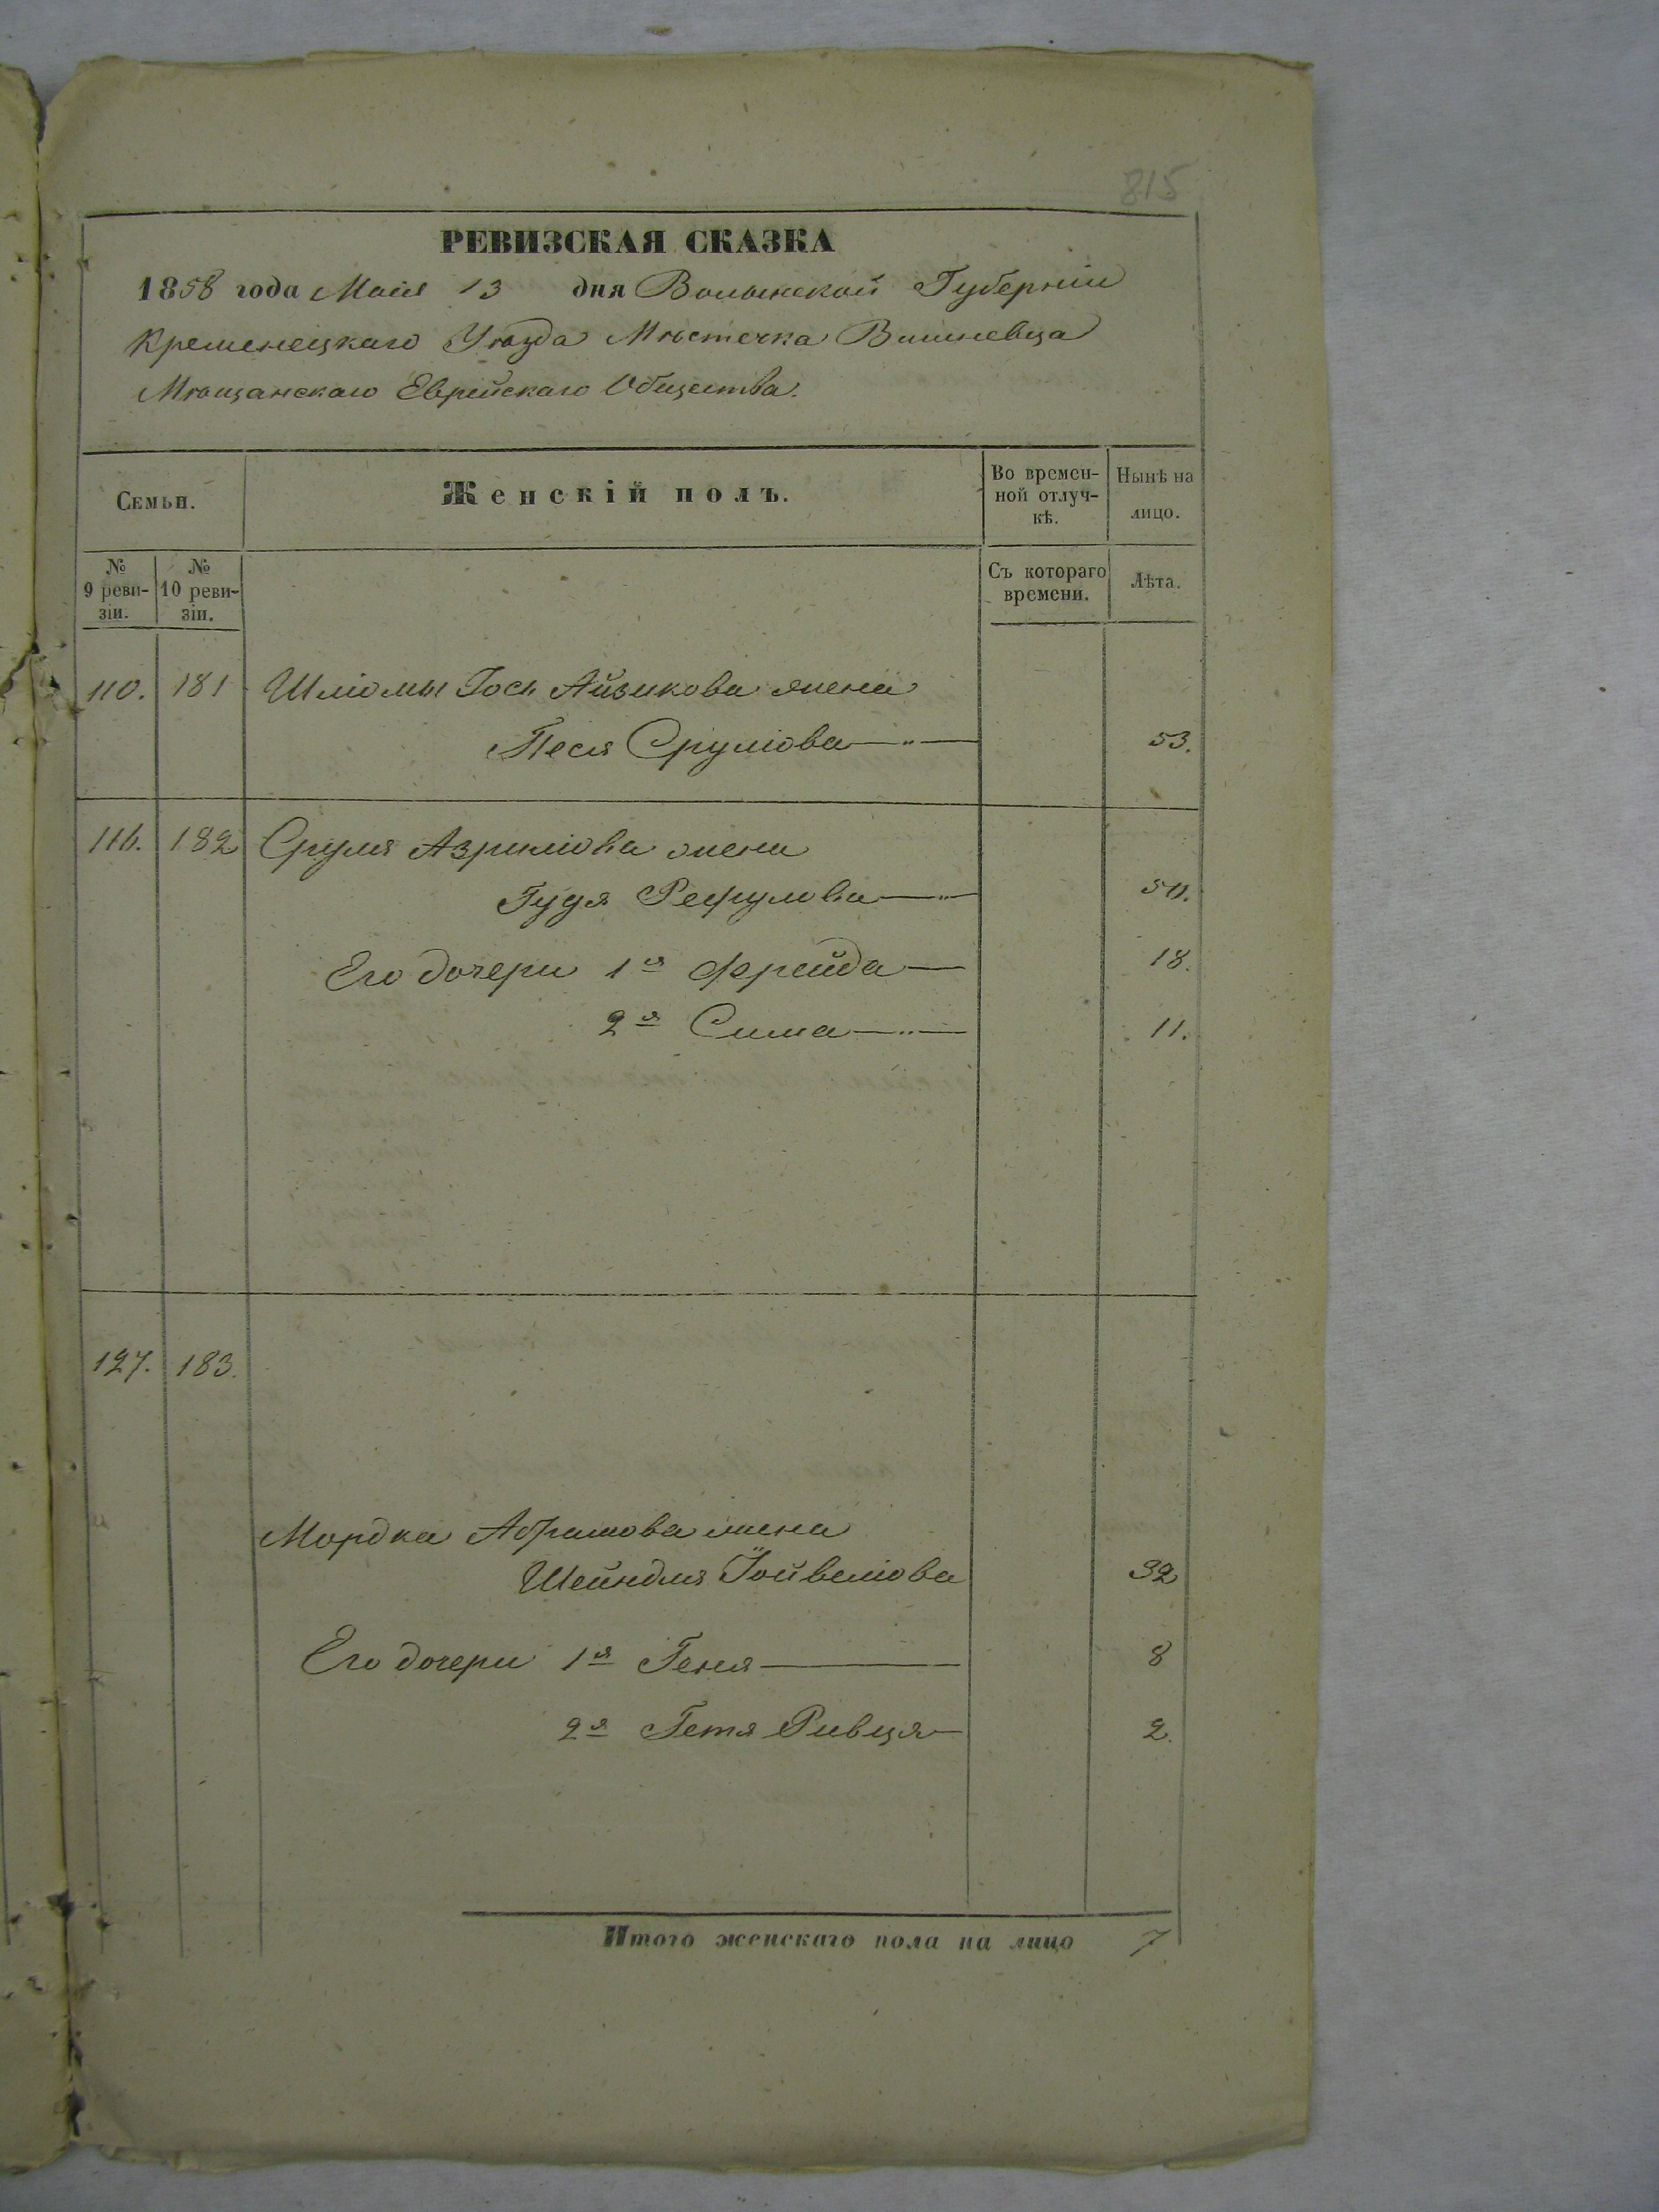 815
РЕВИЗСКАЯ СКАЗКА
1858 года Маія 13 дня Волынской Губерніи
Кременецкаго Уѣзда Мѣстечка Вишневца
Мѣщанскаго Еврейскаго Общества.
Семьи.
Женскій полъ.
Во времен-
ной отлуч-
кѣ.
Нынѣ на
лицо.
№
9 реви-
зіи.
№
10 реви-
зіи.
Съ котораго
времени.
Лѣта.
110. 181 Шліомы Іось Айзикова жена
Песя Сруліова 53.
116. 182 Сруля Азриліова жена
Гудя 50.
Его дочери 1я Фрейда 18.
2я Сима 11.
127. 183.
Мордка Абрамова жена
Шейндля Іойвеліова 32
Его дочери 1я Геня 8
2я Гетя Ривця 2.
Итого женскаго пола на лицо 7